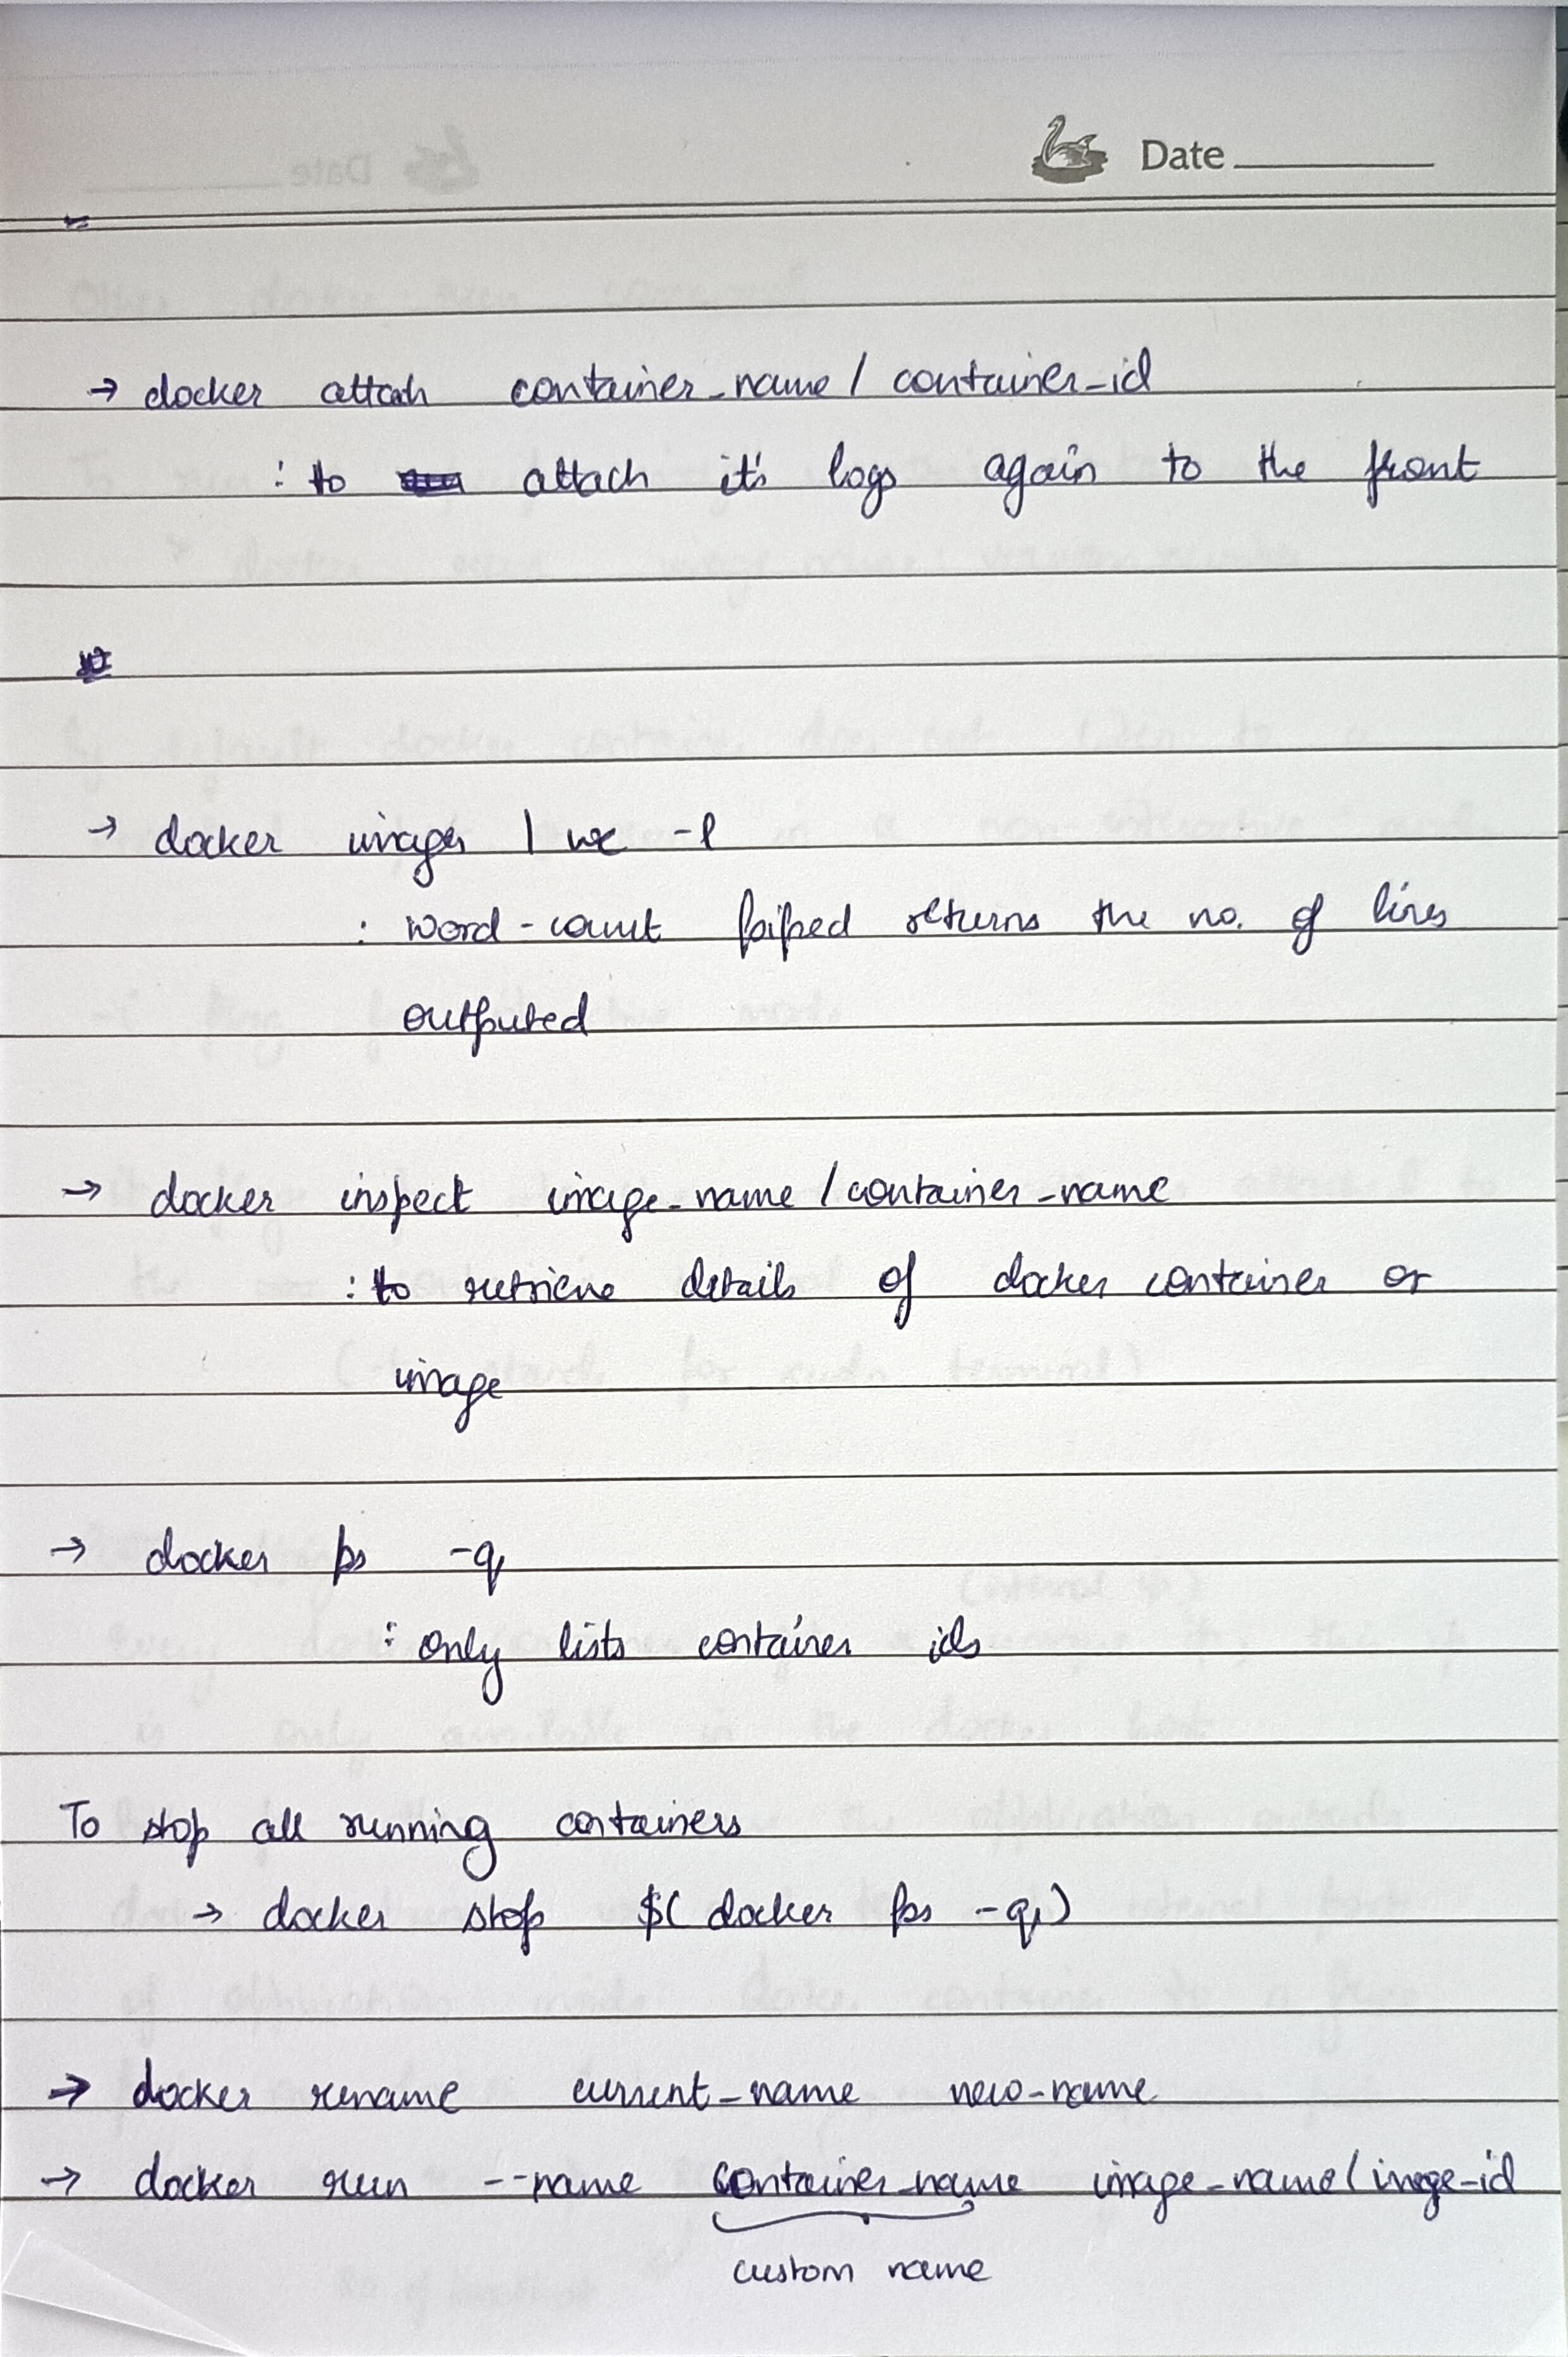 Date
→ docker attach container_name / container_id
: to attach it's logs again to the front
→ docker images | wc -l
: word-count pipped returns the no. of lines
outputed
→ docker inspect image_name / container_name
: to retrieve details of docker container or
image
→ docker ps -q
: only lists container ids
To stop all running containers
→ docker stop $( docker ps -q)
→ docker rename current_name new-name
→ docker run --name container_name image_name / image-id
custom name